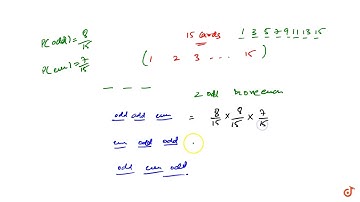 P(odd) = 8/15
15 cards
1 3 5 7 9 11 13 15
P(even) = 7/15
( 1 2 3 ... 15 )
2 odd
odd odd even = 8/15 × 8/15 × 7/15
even odd odd
odd even odd